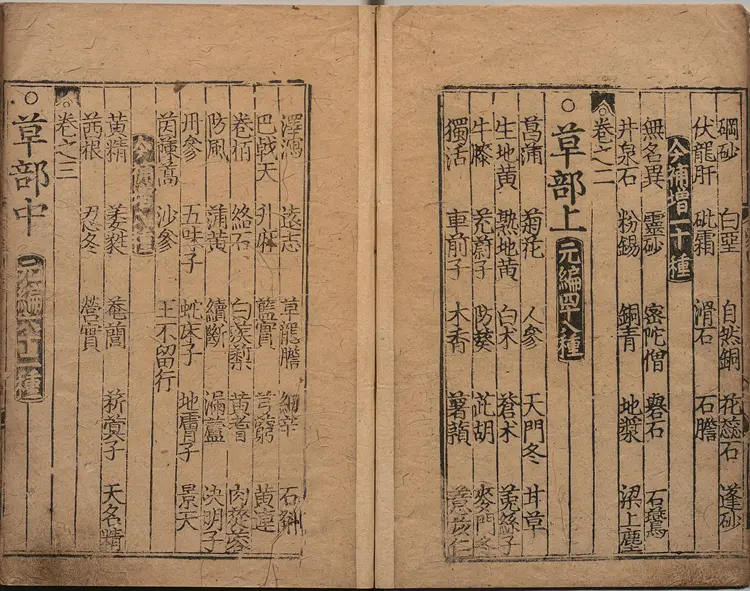 碙砂 白堊 自然銅 花蕊石 蓬砂
伏龍肝 砒霜 滑石 石膽
今補增一十種
無名異 靈砂 密陀僧 礜石 石鷰
井泉石 粉錫 銅青 地漿 梁上塵
卷之二
○草部上 元編四十八種
菖蒲 菊花 人參 天門冬 甘草
生地黃 熟地黃 白朮 蒼朮 菟絲子
牛膝 茺蔚子 防葵 茈胡 麥門冬
獨活 車前子 木香 薯蕷 薏苡仁
澤瀉 遠志 草龍膽 細辛 石斛
巴戟天 藍實 芎藭 黃連
卷柏 絡石 白蒺藜 黃耆 肉蓯蓉
防風 蒲黃 續斷 漏蘆 決明子
丹參 五味子 蛇床子 地膚子 景天
茵蔯蒿 沙參 王不留行
今補增 種
黃精 菴䕡 菥蓂子 天名精
茜根 忍冬 營實
卷之三
○草部中 元編 種